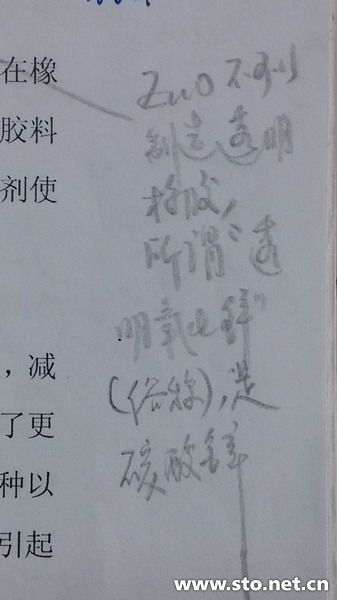 在橡
胶料
剂使
，减
了更
种以
引起
ZnO不可以
制造透明
橡胶，
所谓“透
明氧化锌”
(俗称)，是
碳酸锌
www.sto.net.cn